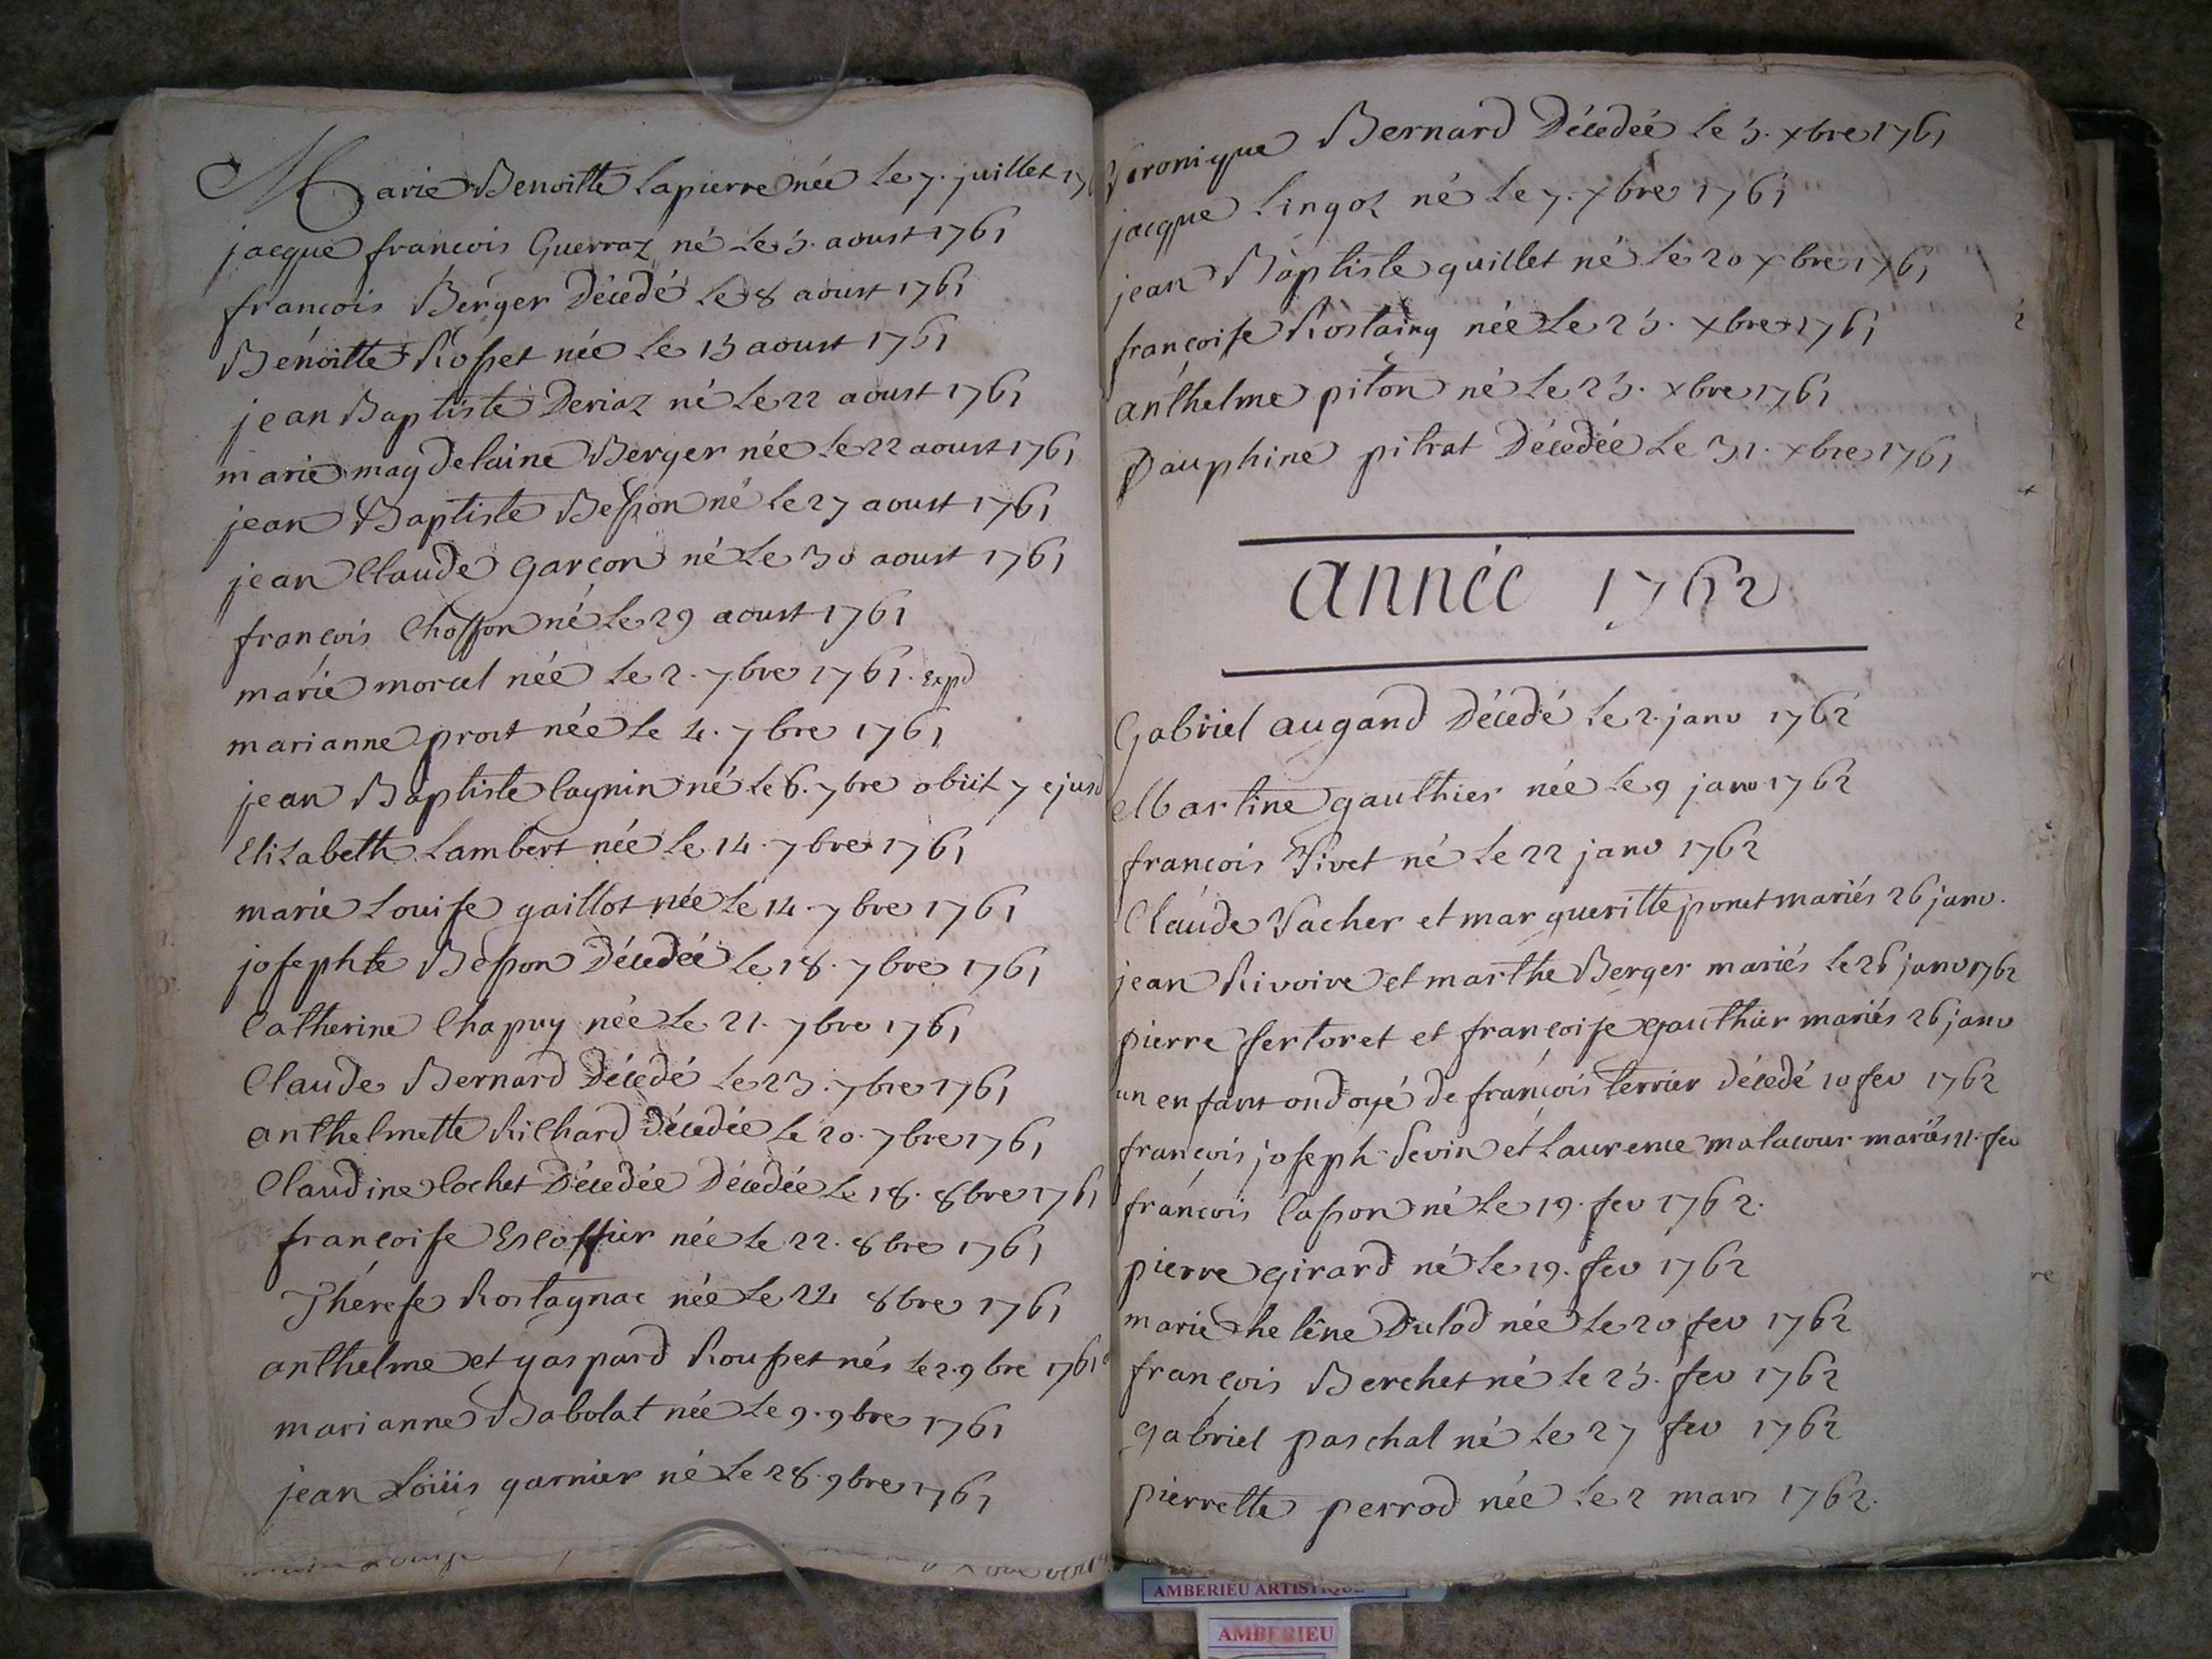 Marie Benoitte Lapierre née le 7. juillet 176
jacque francois Guerraz né le 5. aoust 1761
francois Berger Décedé le 8 aoust 1761
Benoitte Rosset née le 15 aoust 1761
jean Baptiste Deriaz né le 22 aoust 1761
marie magdelaine Berger née le 22 aoust 1761
jean Baptiste Besson né le 27 aoust 1761
jean Claude Garcon né le 30 aoust 1761
francois Chosson né le 29 aoust 1761
marie morcel née le 2. 7bre 1761. Expd
marianne prost née le 4. 7bre 1761
jean Baptiste Cagnin né le 6. 7bre obiit 7 ejusd
Elizabeth Lambert née le 14. 7bre 1761
marie Louise gaillot née le 14. 7bre 1761
josephte Besson Décedée le 18. 7bre 1761
Catherine Chapuy née le 21. 7bre 1761
Claude Bernard Décedé le 23. 7bre 1761
anthelmette Richard Décedée le 20. 7bre 1761
Claudine Cochet Décedée Décedée le 18. 8bre 1761
francoise Escoffier née le 22. 8bre 1761
Thérese Rostagnac née le 24 8bre 1761
anthelme et gaspard Rousset nés le 2. 9bre 1761
marianne Babolat née le 9. 9bre 1761
jean Loüis garnier né le 28. 9bre 1761
Veronique Bernard Décedée le 5. xbre 1761
jacque Lingoz né le 7. xbre 1761
jean Baptiste guillet né le 20 xbre 1761
françoise Rostaing née le 25. xbre 1761
anthelme piton né le 25. xbre 1761
Dauphine pitrat Décedée le 31. xbre 1761
année 1762
Gabriel augand Décedé le 2. janv 1762
Martine gauthier née le 9 janv 1762
francois Vivet né le 22 janv 1762
Claude Vacher et margueritte ponet mariés 26 janv.
jean Rivoire et marthe Berger mariés le 26 janv 1762
pierre fertoret et françoise gauthier mariés 26 janv
un enfant ondoyé de françois terrier décedé 10 fev 1762
françois joseph Sevin et Laurence malacour mariés 11. fev
francois Casson né le 19. fev 1762.
pierre girard né le 19. fev 1762
marie heléne Dulod née le 20 fev 1762
françois Berchet né le 25. fev 1762
gabriel paschal né le 27 fev 1762
pierrette perrod née le 2 mars 1762.
AMBERIEU ARTISTIQUE
AMBERIEU